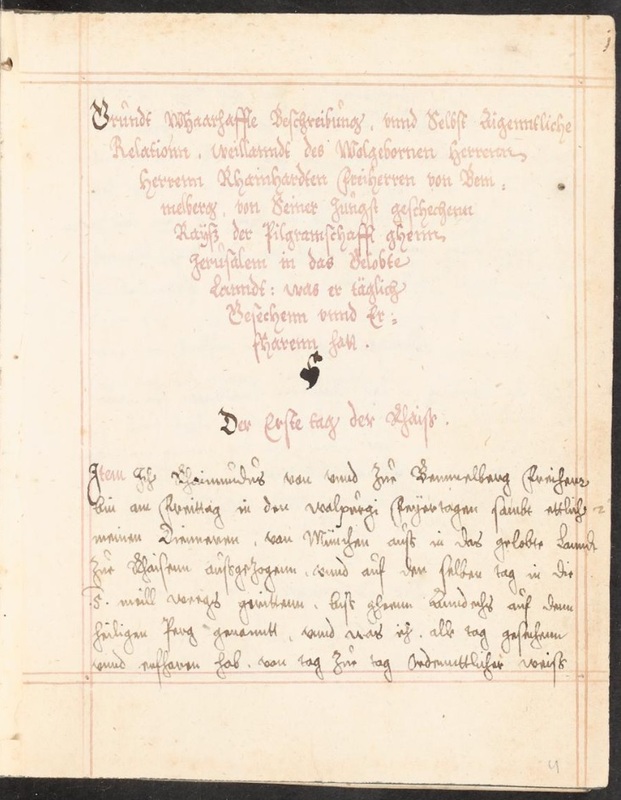 Gründt Whaarhaffte Beschreibung, vnnd Selbst Aigenntliche
Relatioun, weillanndt des Wolgebornen Herrenn
Herrenn Rhainhardten Freiherren von Bem¬
melberg, von Seiner Jüngst geschechenn
Raÿß der Pilgramschafft ghenn
Jerüsalem in das Gelobte
Lanndt: was er täglich
Gesechenn vnnd Er¬
fharenn hatt.
Der Erste tag der Rhaiss.
Item Ich Rhaimündus von vnnd Zue Bemmelberg Freiherr
bin am Freittag in den walpurgi Feyertagen sambt ettlich
meinen Diennern, von München auß in das gelobte Lanndt
Zue Rhaisenn außgezogenn, vnnd auf den selben tag in die
5. meill weegs geritten, biß ghenn Änndechs auf denn
heiligen Perg genanntt, vnnd was ich alle tag gesechenn
vnnd erfharen hab, von tag Zue tag Ordenntlicher weiß
4